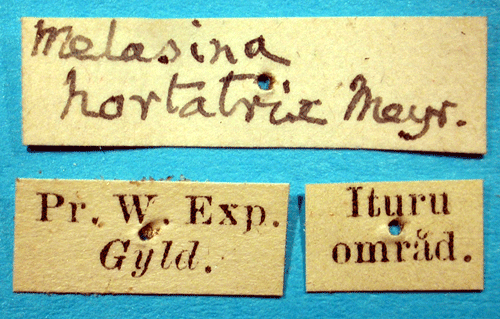 Melasina
hortatrix Meyr.
Pr. W. Exp.
Gyld.
Ituru
områd.